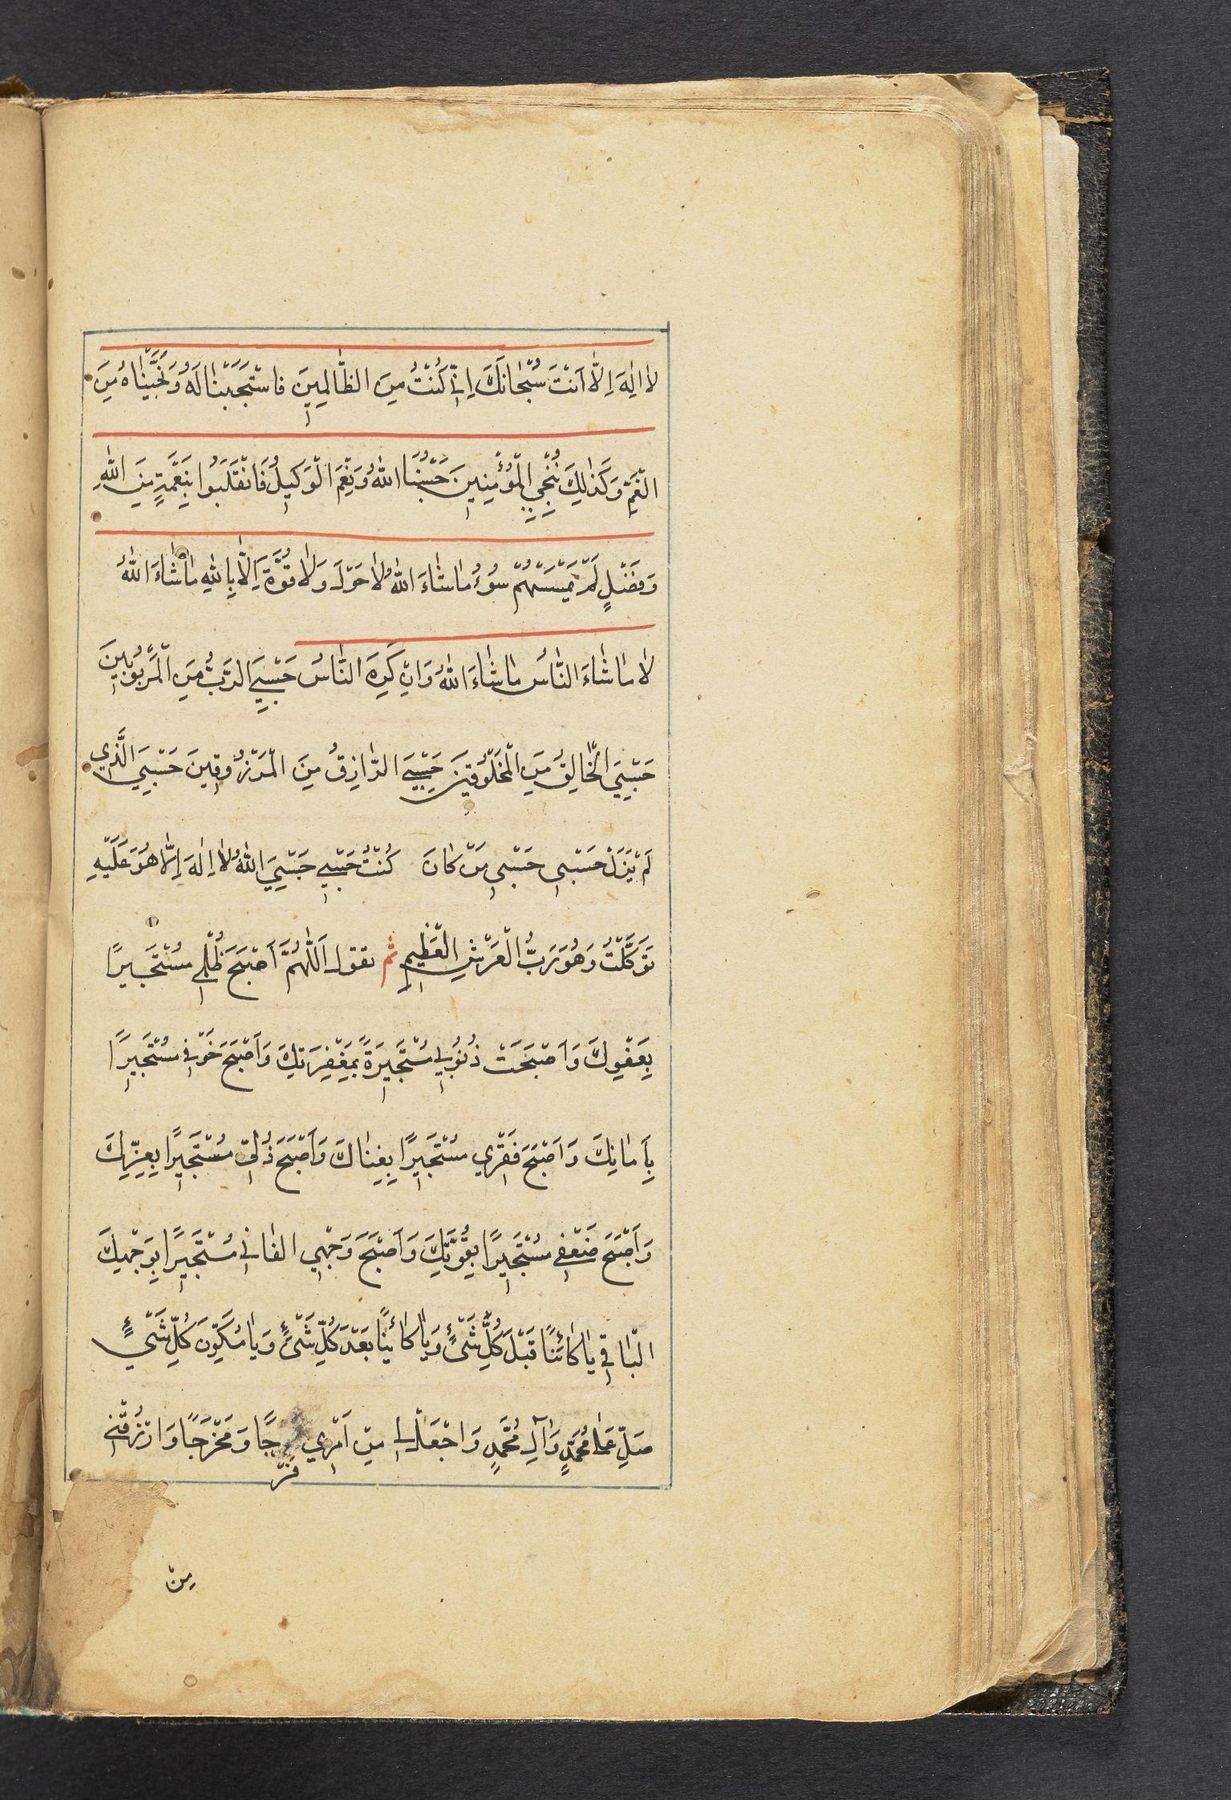 لا اِلهَ اِلّا اَنْتَ سُبْحانَكَ اِنّي كُنْتُ مِنَ الظّالِمِينَ فَاسْتَجَبْنا لَهُ وَنَجَّيْناهُ مِنَ
الْغَمِّ وَكَذلِكَ نُنْجِي الْمُؤْمِنِينَ حَسْبُنَا اللّهُ وَنِعْمَ الْوَكيلُ فَانْقَلَبُوا بِنِعْمَةٍ مِنَ اللّهِ
وَفَضْلٍ لَمْ يَمْسَسْهُمْ سُوءٌ ما شاءَ اللّهُ لا حَوْلَ وَلا قُوَّةَ اِلّا بِاللّهِ ما شاءَ اللّهُ
لا ما شاءَ النّاسُ ما شاءَ اللّهُ وَاِنْ كَرِهَ النّاسُ حَسْبِيَ الرَّبُّ مِنَ الْمَرْبُوبينَ
حَسْبِيَ الْخالِقُ مِنَ الْمَخْلُوقينَ حَسْبِيَ الرّازِقُ مِنَ الْمَرْزُوقينَ حَسْبِيَ الَّذي
لَمْ يَزَلْ حَسْبي حَسْبي مَنْ كانَ كُنْتُ حَسْبي حَسْبِيَ اللّهُ لا اِلهَ اِلّا هُوَ عَلَيْهِ
تَوَكَّلْتُ وَهُوَ رَبُّ الْعَرْشِ الْعَظيمِ ثم تقول اَللّهُمَّ اَصْبَحَ ظُلْمي مُسْتَجيرًا
بِعَفْوِكَ وَاَصْبَحَتْ ذُنُوبي مُسْتَجيرَةً بِمَغْفِرَتِكَ وَاَصْبَحَ خَوْفي مُسْتَجيرًا
بِاَمانِكَ وَاَصْبَحَ فَقْري مُسْتَجيرًا بِغِناكَ وَاَصْبَحَ ذُلّي مُسْتَجيرًا بِعِزِّكَ
وَاَصْبَحَ ضَعْفي مُسْتَجيرًا بِقُوَّتِكَ وَاَصْبَحَ وَجْهِي الفاني مُسْتَجيرًا بِوَجْهِكَ
الْباقي يا كائِنًا قَبْلَ كُلِّ شَيْءٍ وَيا كائِنًا بَعْدَ كُلِّ شَيْءٍ وَيا مُكَوِّنَ كُلِّ شَيْءٍ
صَلِّ عَلى مُحَمَّدٍ وَآلِ مُحَمَّدٍ وَاجْعَلْ لي مِنْ اَمْري فَرَجًا وَمَخْرَجًا وَارْزُقْني
مِنْ